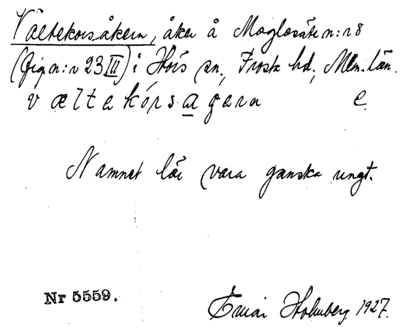 Vältekorsåkern, åker å Maglasäte n:r 8
(fig n:r 23 III) i Hörs sn, Frosta hd, Mlm. län.
v æ l t e k ó r s a g ə r n a e.
Namnet lär vara ganska ungt.
Nr 5559. Einar Holmberg 1927.